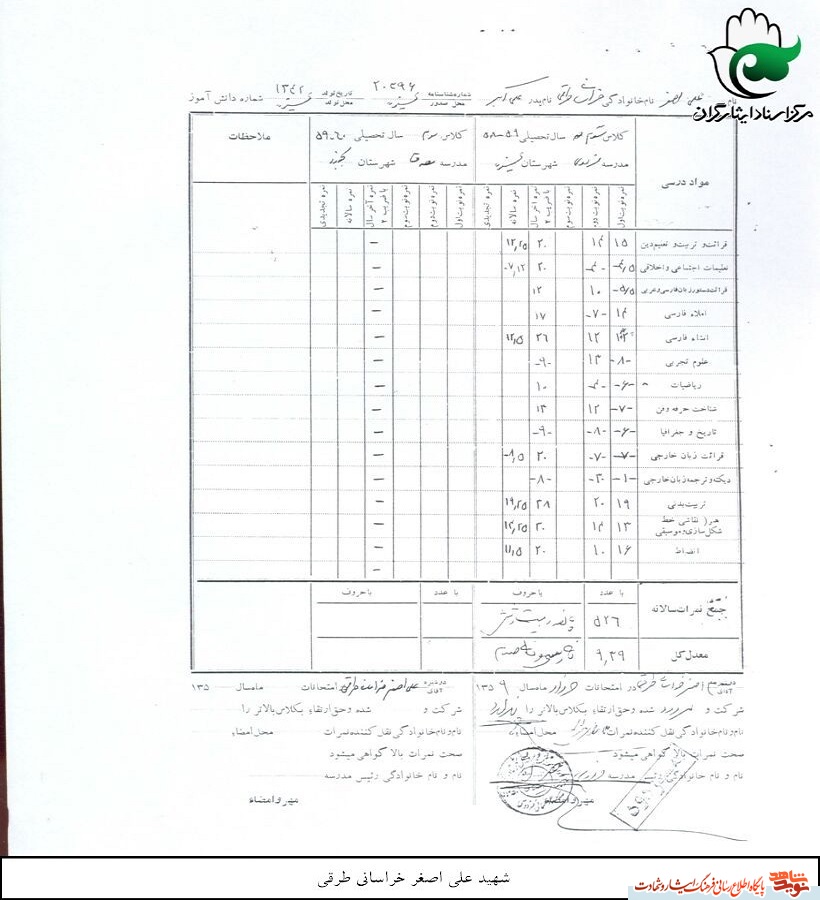 مرکز اسناد ایثارگران
نام علی اصغر نام خانوادگی خراسانی طرقی نام پدر علی اکبر شماره شناسنامه ۲۰۳۹۶ محل صدور تاریخ تولد ۱۳۴۲ محل تولد شماره دانش آموز
مواد درسی
کلاس سوم سال تحصیلی ۵۹-۵۸
مدرسه فردوسی شهرستان
کلاس سوم سال تحصیلی ۶۰-۵۹
مدرسه شهرستان
ملاحظات
نمره نوبت اول نمره نوبت دوم نمره نوبت سوم نمره آخر سال با ضریب ۲ نمره سالانه نمره تجدیدی
نمره نوبت اول نمره نوبت دوم نمره نوبت سوم نمره آخر سال با ضریب ۲ نمره سالانه نمره تجدیدی
قرائت و تربیت و تعلیم دین ۱۵ ۱۴ ۲۰ ۱۲٫۲۵ –
تعلیمات اجتماعی و اخلاقی ۲۰ ۷٫۱۲ –
قرائت و دستور زبان فارسی و عربی ۱۰ ۱۲ –
املاء فارسی ۱۴ -۷- ۱۷ –
انشاء فارسی ۱۲ ۲۶ ۱۲٫۵ –
علوم تجربی -۸- ۱۳ -۹- –
ریاضیات -۶- ۱۰ –
شناخت حرفه و فن -۷- ۱۲ ۱۳ –
تاریخ و جغرافیا -۶- -۸- -۹- –
قرائت زبان خارجی -۷- -۷- ۲۰ ۸٫۵ –
دیکته و ترجمه زبان خارجی -۱- -۲- -۸- –
تربیت بدنی ۱۹ ۲۰ ۲۸ ۱۹٫۲۵ –
هنر ( نقاشی خط شکل سازی و موسیقی ۱۳ ۱۴ ۲۰ ۱۴٫۲۵ –
انضباط ۱۶ ۱۰ ۲۰ ۱۱٫۵ –
با عدد با حروف با عدد با حروف
جمع نمرات سالانه ۵۲۶ پانصد و بیست و شش
معدل کل ۹٫۲۹
دوشیزه آقای اصغر خراسانی طرقی در امتحانات خرداد ماه سال ۱۳۵۹
شرکت و مردود شده و حق ارتقاء بکلاس بالاتر را ندارد
نام و نام خانوادگی نقل کننده نمرات محل امضاء
صحت نمرات بالا گواهی میشود
نام و نام خانوادگی رئیس مدرسه
مهر و امضاء
دوشیزه آقای علی اصغر خراسانی طرقی امتحانات ماه سال ۱۳۵
شرکت و شده و حق ارتقاء بکلاس بالاتر را
نام و نام خانوادگی نقل کننده نمرات محل امضاء
صحت نمرات بالا گواهی میشود
نام و نام خانوادگی رئیس مدرسه
مهر و امضاء
شهید علی اصغر خراسانی طرقی
نوید شاهد پایگاه اطلاع رسانی فرهنگ ایثار و شهادت